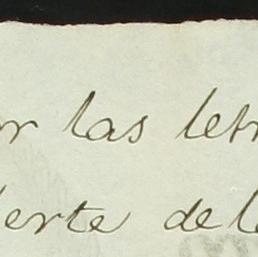 or las letr
erte de l